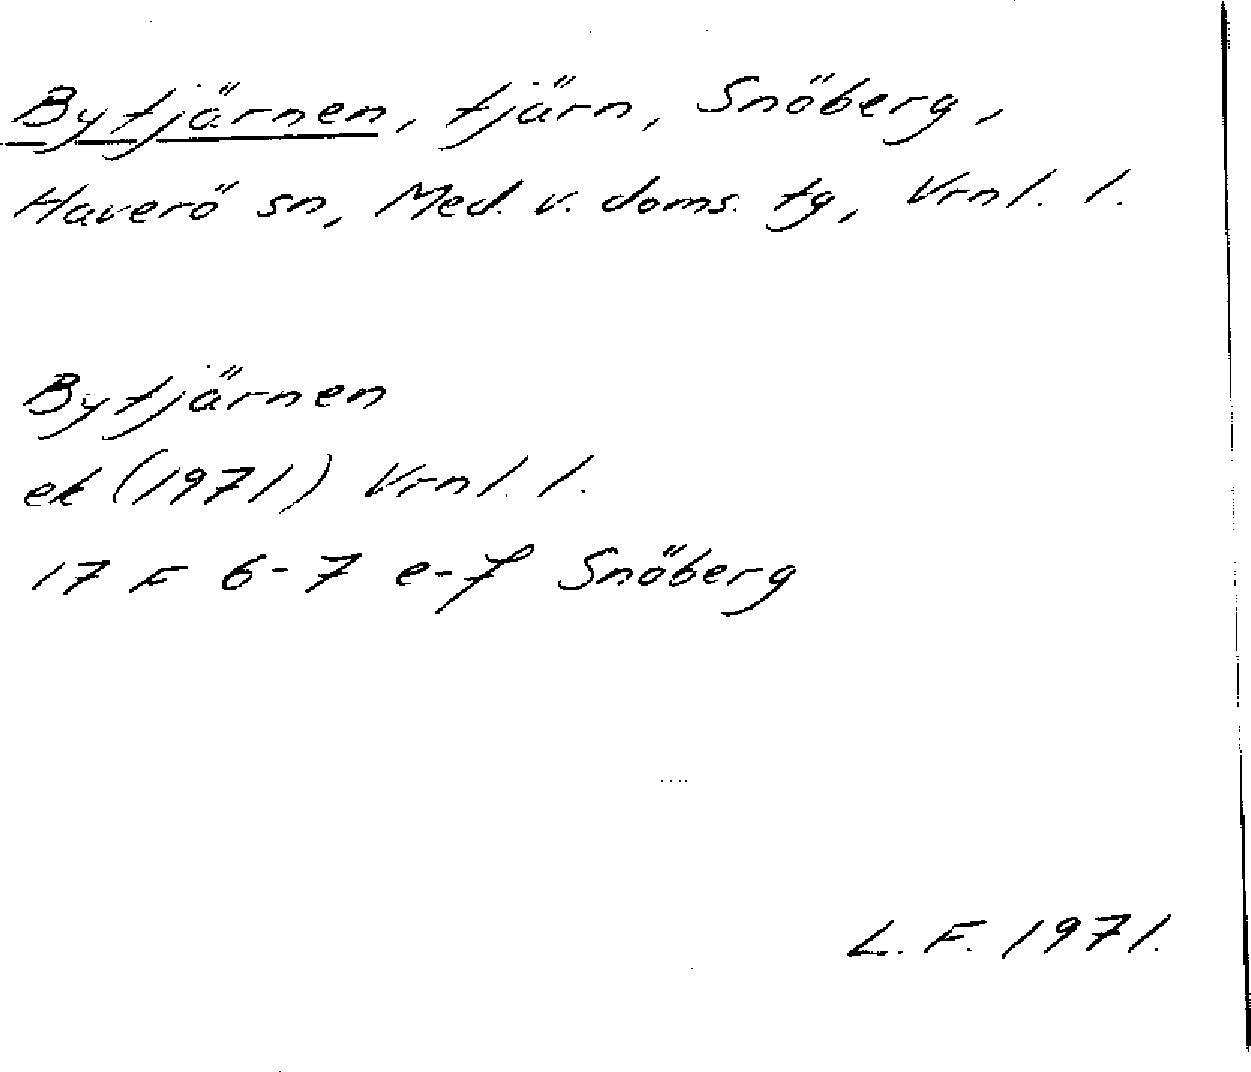 Bytjärnen, tjärn, Snöberg,
Haverö sn, Med. v. doms. tg, Vrnl. l.
Bytjärnen
ek (1971) Vrnl. l.
17 F 6-7 e-f Snöberg
L. F. 1971.